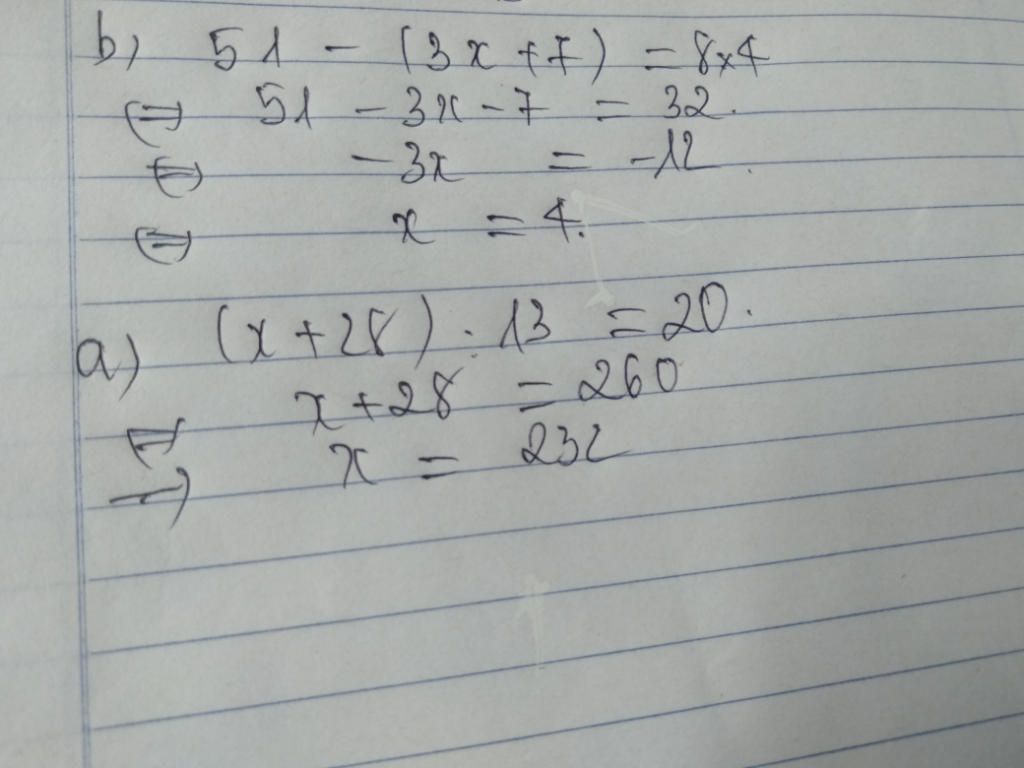 b) 51 - (3x + 7) = 8x4
⇔ 51 - 3x - 7 = 32.
⇔ - 3x = -12.
⇔ x = 4.
a) (x + 28) : 13 = 20.
⇔ x + 28 = 260
→ x = 232